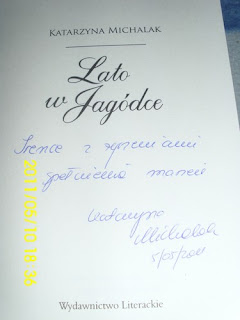 KATARZYNA MICHALAK
Lato
w Jagódce
Irence z życzeniami
spełnienia marzeń
Katarzyna
Michalak
Wydawnictwo Literackie
2011/06/10 18:36